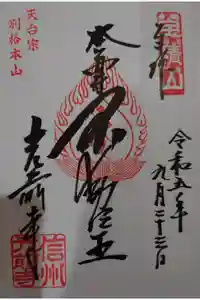 奉拝
令和五年
九月二十三日
本尊 不動明王
天台宗
別格本山
光前寺
信州